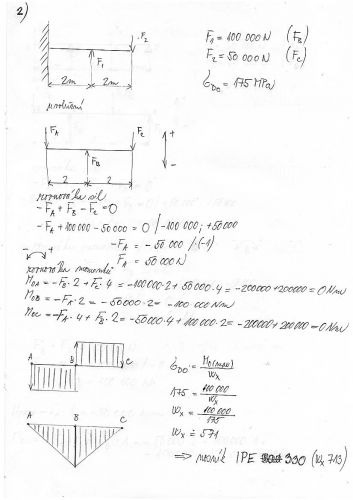 2)
F2
F1 = 100 000 N (FB)
F2 = 50 000 N (FC)
F1
2m 2m
σDO = 175 MPa
FA FC
+
FB
-
2 2
rovnováha sil
-FA + FB - FC = 0
-FA + 100 000 - 50 000 = 0 / -100 000; +50000
-FA = -50 000 /·(-1)
FA = 50 000 N
- +
rovnováha momentů
MOA = -FB·2 + FC·4 = -100000·2 + 50 000·4 = -200000+200000 = 0 Nm
MOB = -FA·2 = -50000·2 = -100 000 Nm
MOC = -FA·4 + FB·2 = -50000·4 + 100 000·2 = -200000 + 200 000 = 0 Nm
A B C
σDO = MO(max) / WX
175 = 100 000 / WX
A B C
WX = 100 000 / 175
WX ≐ 571
⇒ nosník IPE 330 (WX 713)